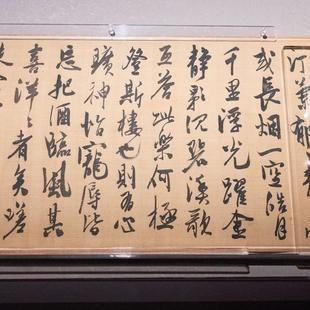 汀蘭郁
或長烟一空皓月
千里浮光躍金
静影沉碧漁歌
互荅此樂何極
登斯樓也則有心
曠神怡寵辱皆
忘把酒臨風其
喜洋々者矣嗟